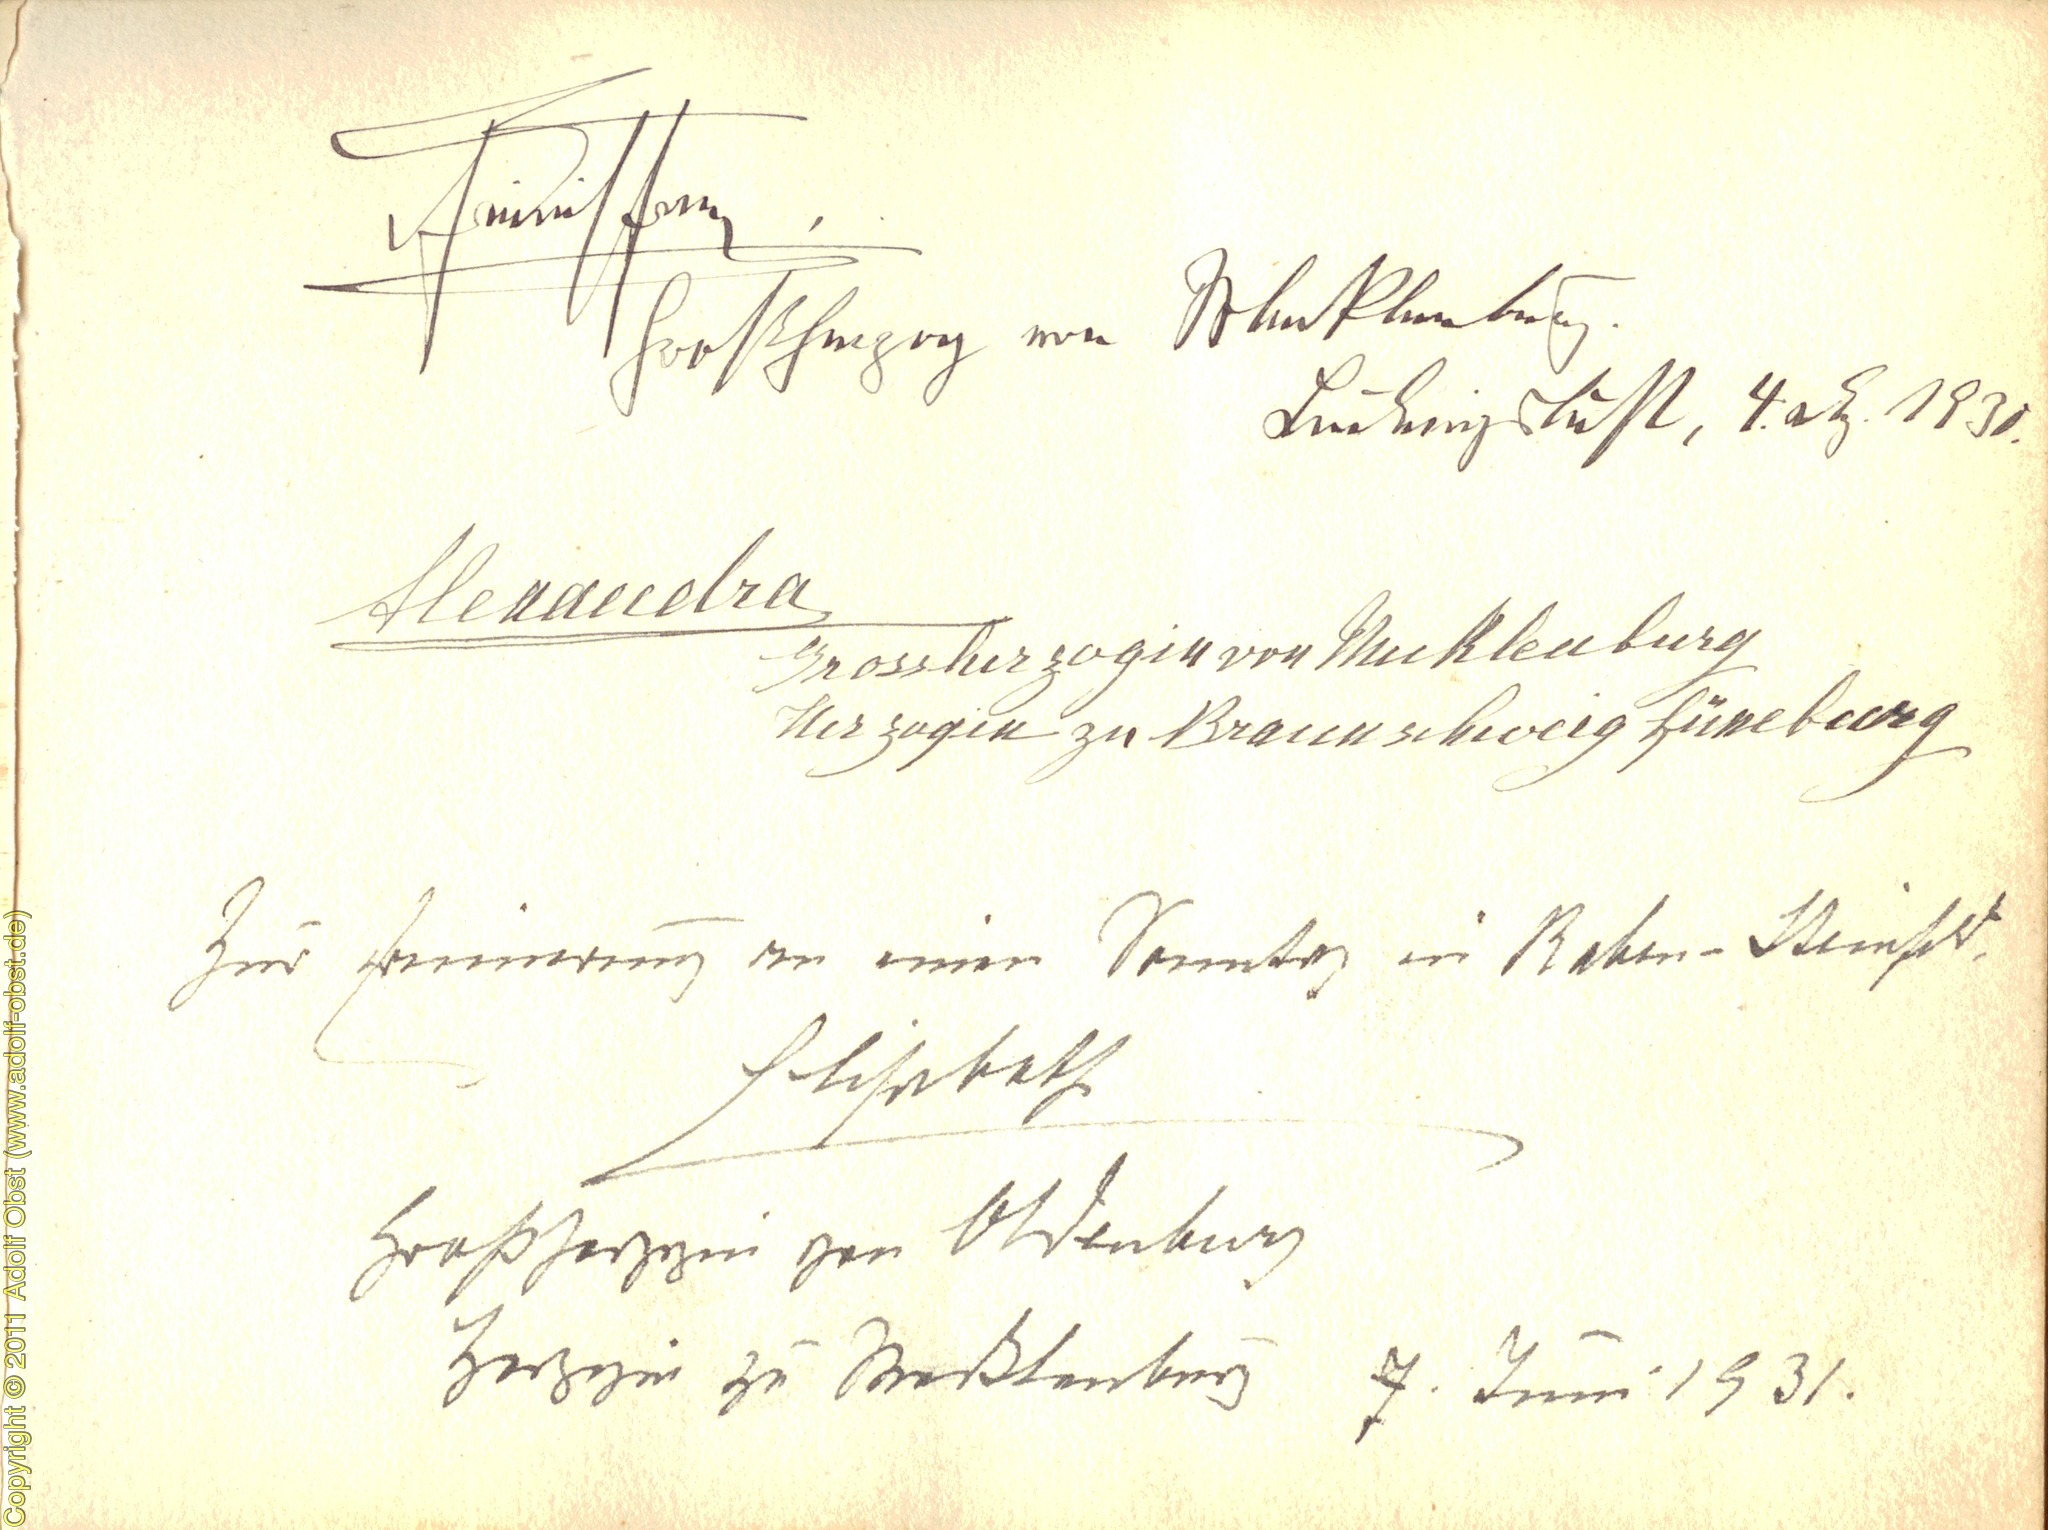 Friedrich Franz,
Großherzog von Mecklenburg.
Ludwigslust, 4. 1930.
Alexandra
Grossherzogin von Mecklenburg
Herzogin zu Braunschweig Lüneburg
Zur Erinnerung an einen Sonntag in Raben-Steinfeld.
Elisabeth
Großherzogin von Oldenburg
Herzogin zu Mecklenburg 7. Juni 1931.
Copyright © 2011 Adolf Obst (www.adolf-obst.de)